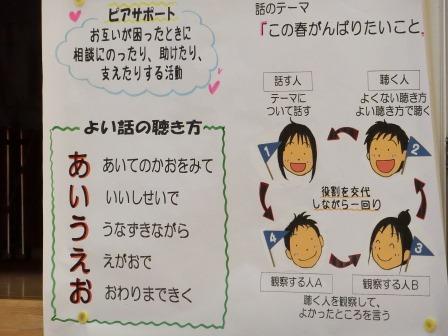 ピアサポート
お互いが困ったときに
相談にのったり、助けたり、
支えたりする活動
話のテーマ
「この春がんばりたいこと
よい話の聴き方
あ あいてのかおをみて
い いいしせいで
う うなずきながら
え えがおで
お おわりまできく
話す人
テーマに
ついて話す
聴く人
よくない聴き方
よい聴き方で聴く
1
2
役割を交代
しながら一回り
4
3
観察する人A
観察する人B
聴く人を観察して、
よかったところを言う